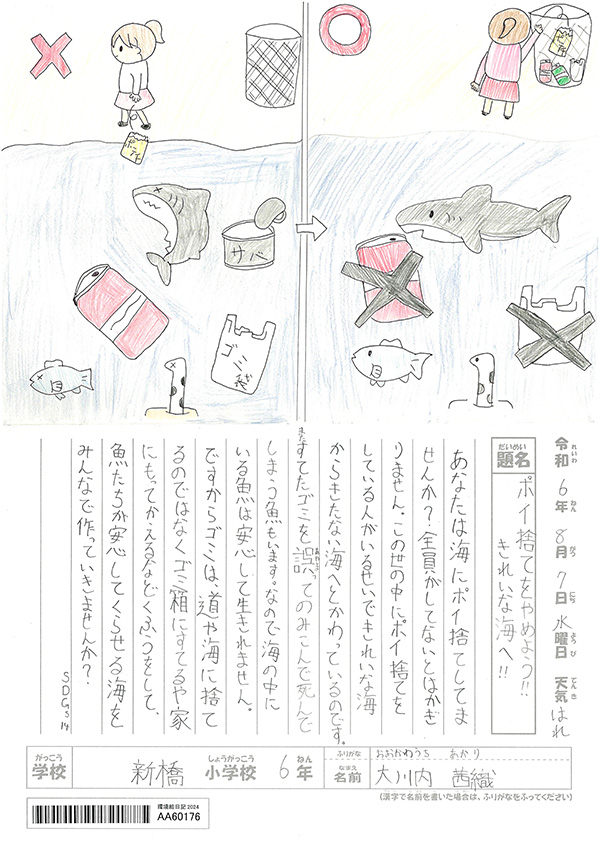 ポテチ
サバ
ゴミ袋
令和6年8月7日水曜日 天気 はれ
れいわ ねん がつ にち ようび てんき
だいめい
題名
ポイ捨てをやめよう!!
きれいな海へ!!
あなたは海にポイ捨てしてま
せんか?全員がしてないとはかぎ
りません。この世の中にポイ捨てを
している人がいるせいできれいな海
からきたない海へとかわっているのです。
またすてたゴミを誤ってのみこんで死んで
あやま
しまう魚もいます。なので海の中に
いる魚は安心して生きれません。
ですからゴミは、道や海に捨て
るのではなくゴミ箱にすてるや家
にもってかえるなどくふうをして、
魚たちが安心してくらせる海を
みんなで作っていきませんか?
SDGs14
がっこう しょうがっこう ねん
学校 新橋 小学校 6年
ふりがな おおかわうち あかり
なまえ
名前 大川内 茜織
(漢字で名前を書いた場合は、ふりがなをふってください)
環境絵日記2024
AA60176